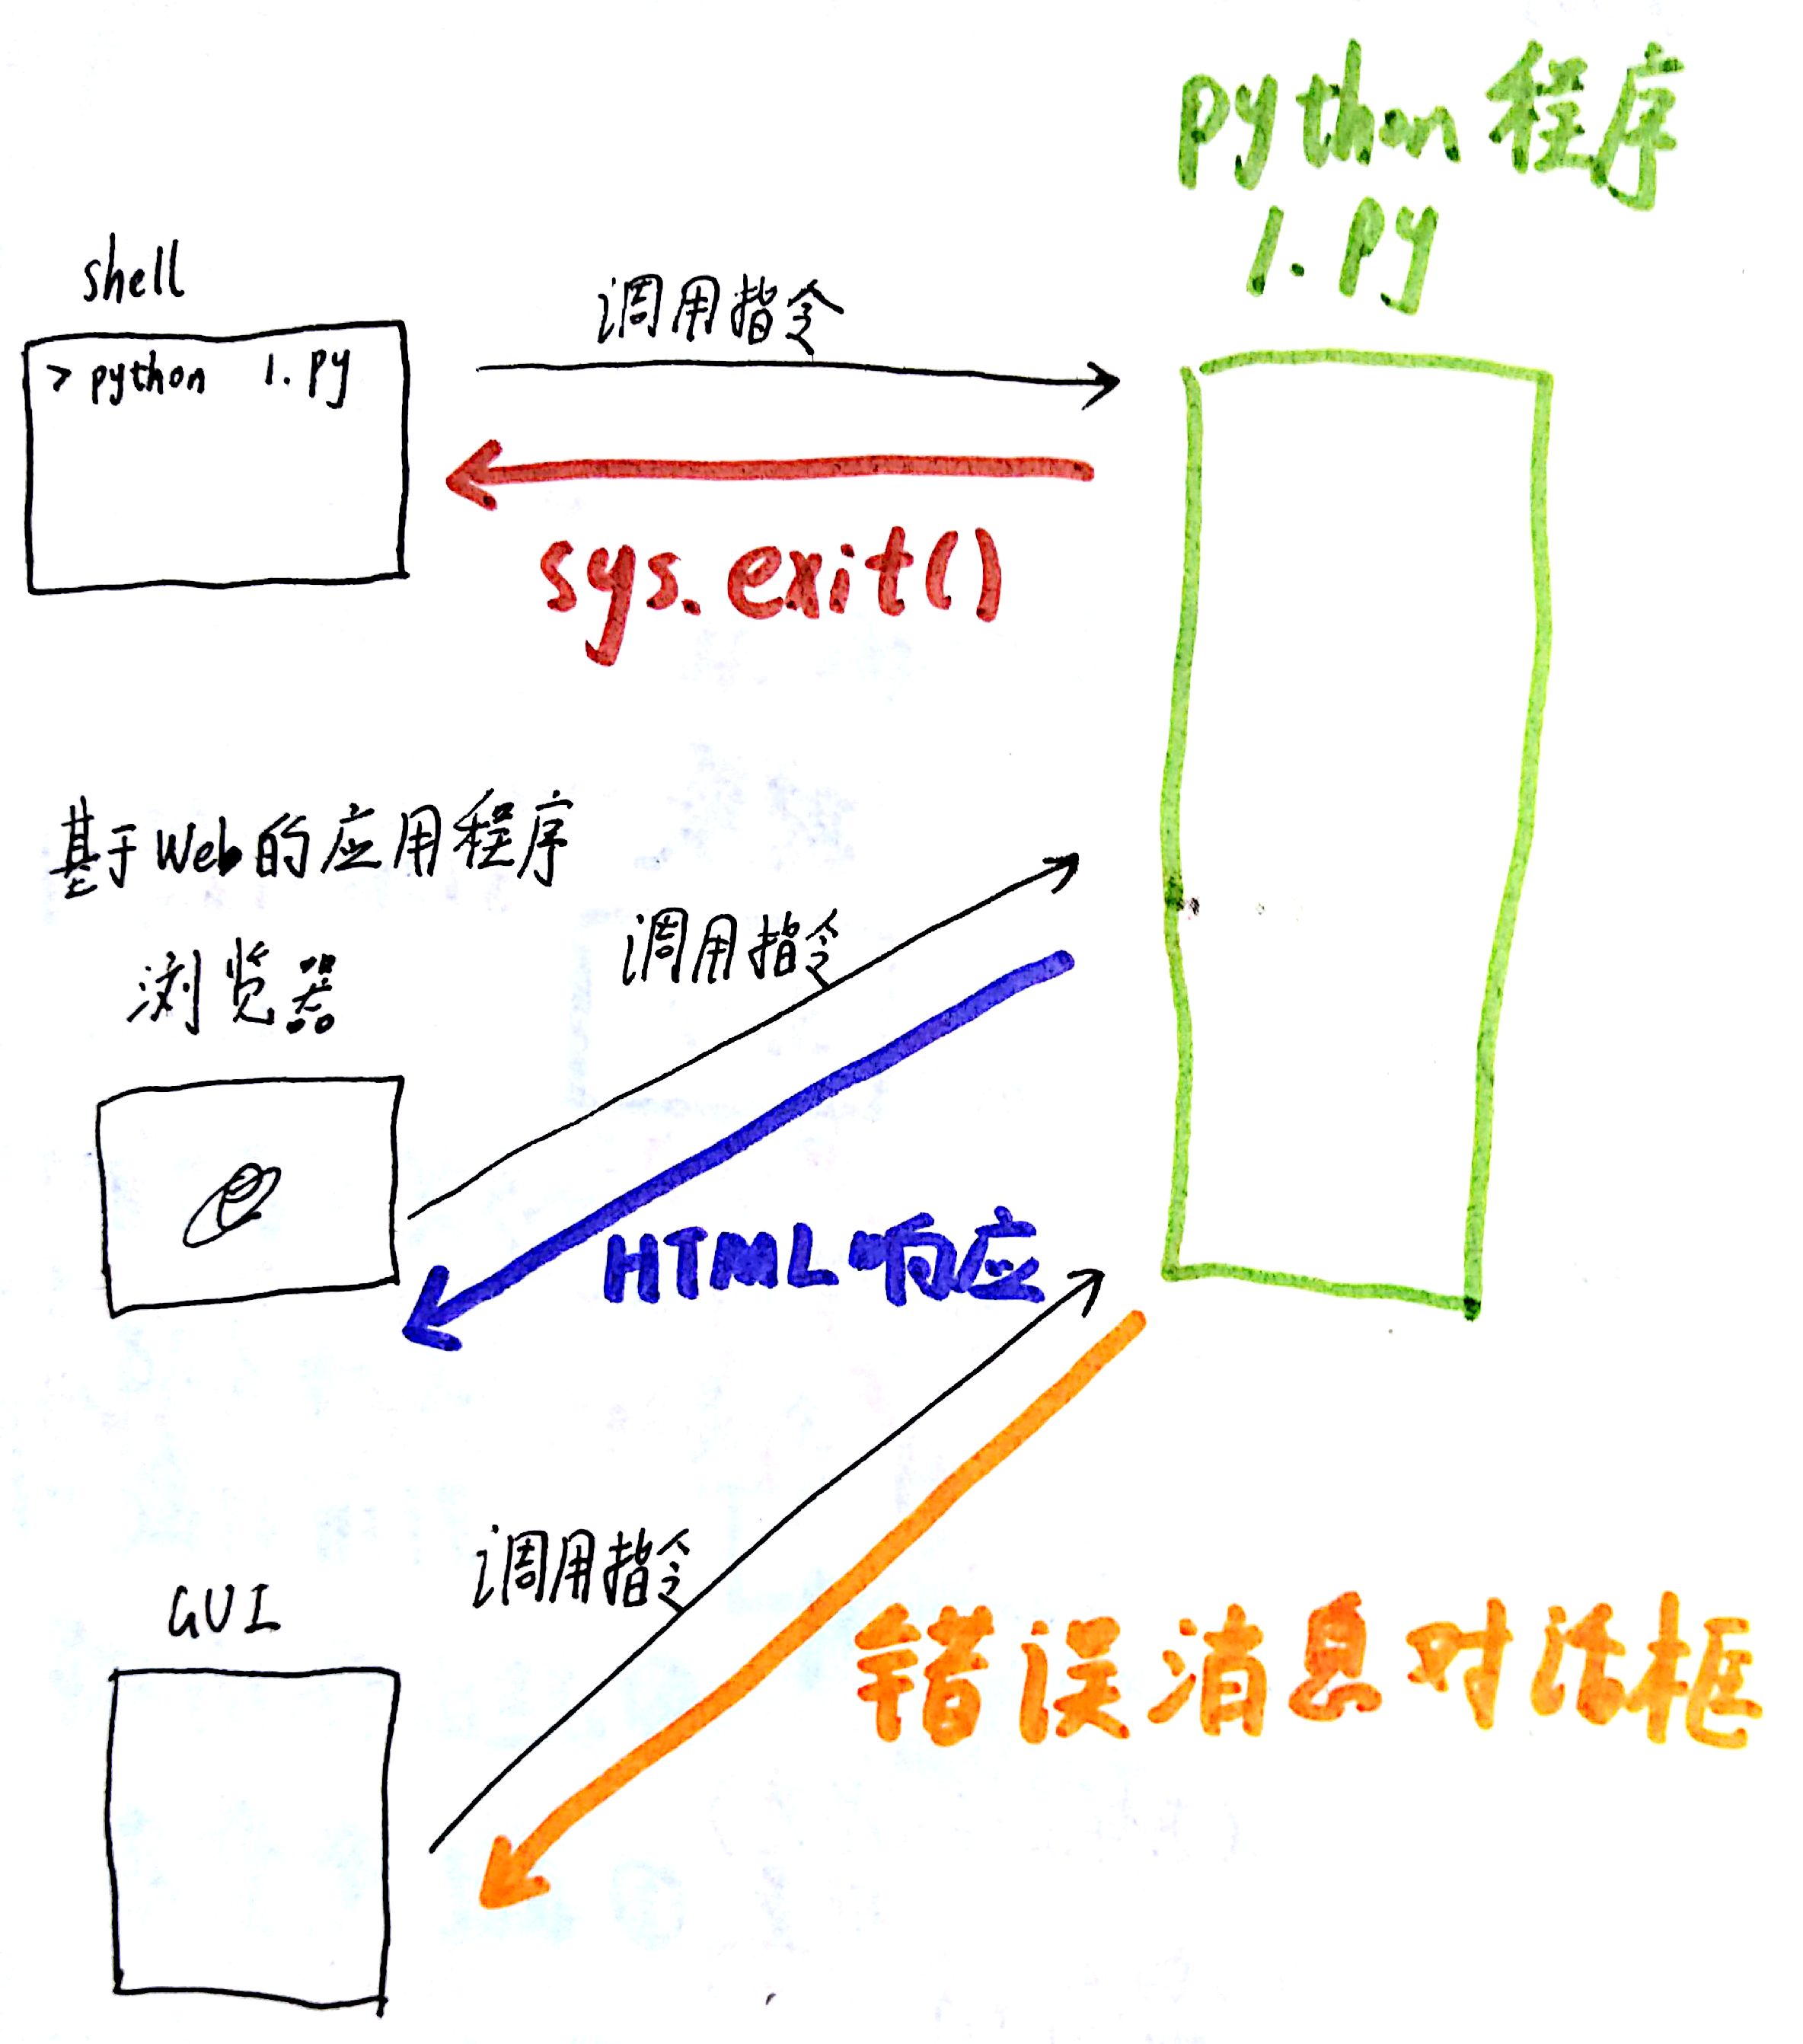 python 程序
1.py
shell
> python 1.py
调用指令
sys.exit()
基于Web的应用程序
浏览器
调用指令
HTML响应
调用指令
GUI
错误消息对话框